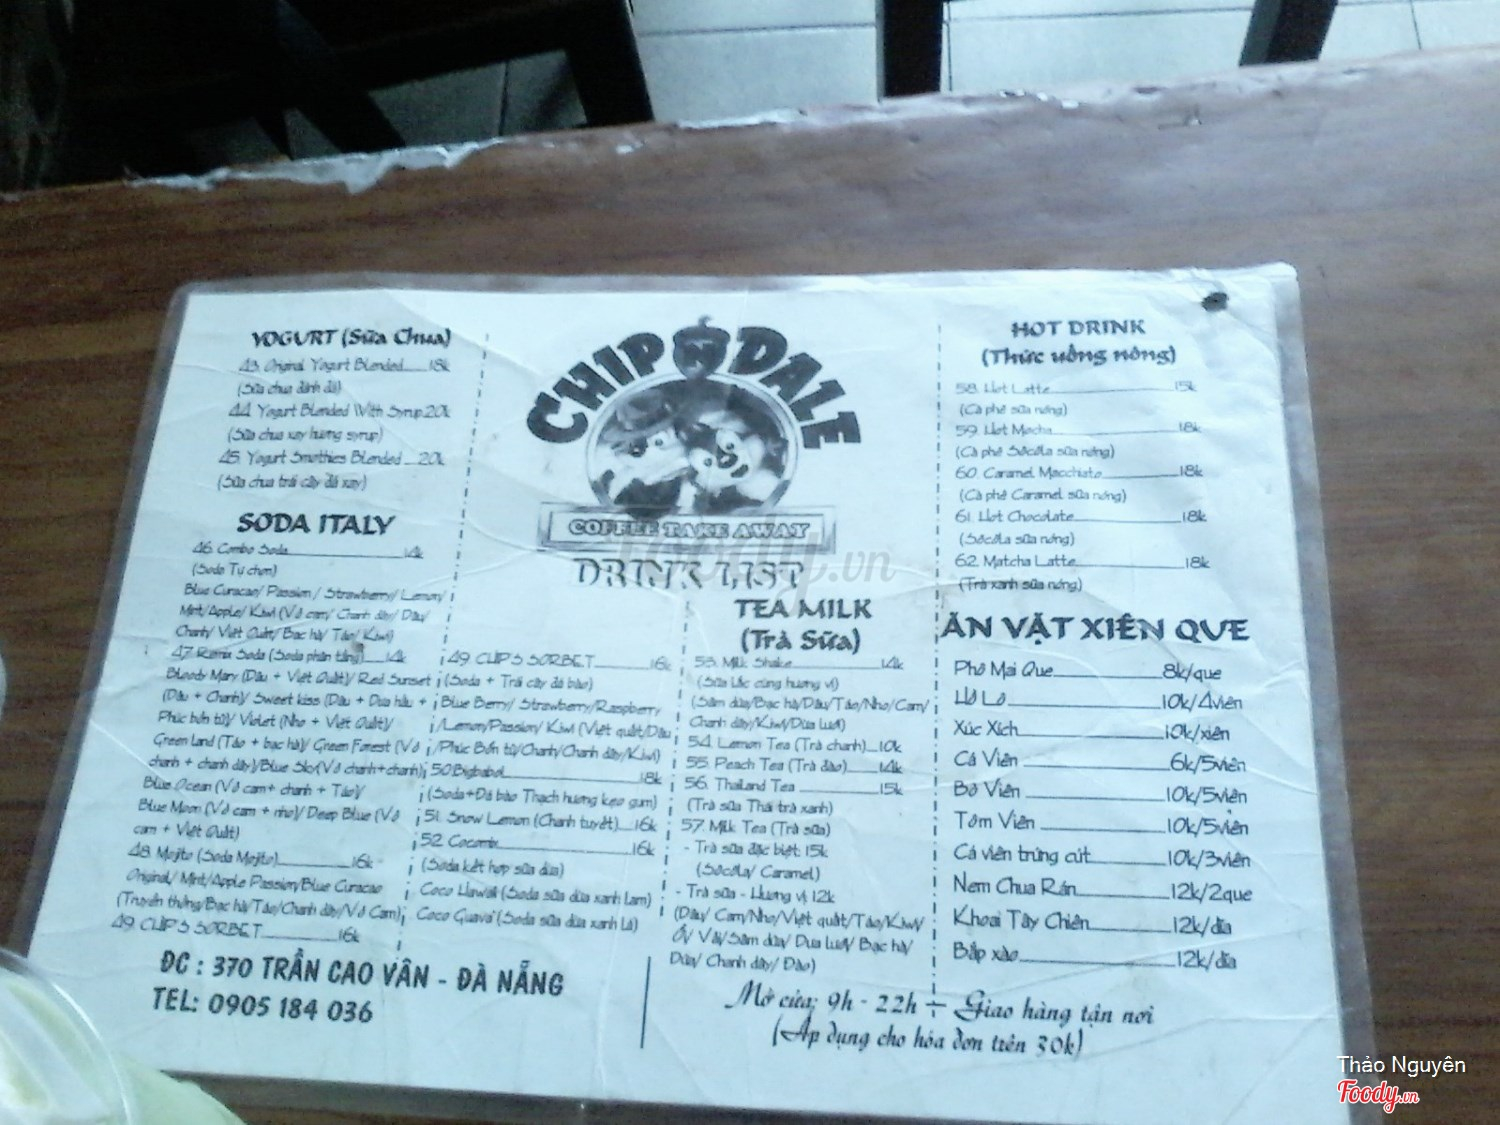 CHIP N DALE
COFFEE TAKE AWAY
DRINK LIST
YOGURT (Sữa Chua)
43. Original Yogurt Blended 18k
(Sữa chua đánh đá)
44. Yogurt Blended With Syrup 20k
(Sữa chua xay hương syrup)
45. Yogurt Smothies Blended 20k
(Sữa chua trái cây đá xay)
SODA ITALY
46. Combo Soda 14k
(Soda Tự chọn)
Blue Curacao/ Passion / Strawberry/ Lemon/
Mint/Apple/ Kiwi (Vỏ cam/ Chanh dây/ Dâu/
Chanh/ Việt Quất/ Bạc hà/ Táo/ Kiwi)
47. Remix Soda (Soda phân tầng) 14k
Bloody Mary (Dâu + Việt Quất)/ Red Sunset
(Dâu + Chanh)/ Sweet kiss (Dâu + Dưa hấu +
Phúc bồn tử)/ Violet (Nho + Việt Quất)/
Green Land (Táo + bạc hà)/ Green Forest (Vỏ
chanh + chanh dây)/Blue Sky(Vỏ chanh+chanh)/
Blue Ocean (Vỏ cam+ chanh + Táo)/
Blue Moon (Vỏ cam + nho)/ Deep Blue (Vỏ
cam + Việt Quất)
48. Mojito (Soda Mojito) 16k
Original/ Mint/Apple Passion/Blue Curacao
(Truyền thống/Bạc hà/Táo/Chanh dây/Vỏ Cam)
49. CLIP'S SORBET 16k
49. CLIP'S SORBET 16k
(Soda + Trái cây đá bào)
Blue Berry/ Strawberry/Raspberry
/Lemon/Passion/ Kiwi (Việt quất/Dâu
/Phúc Bồn tử/Chanh/Chanh dây/Kiwi)
50.Bigbabol 18k
(Soda+Đá bào Thạch hương kẹo gum)
51. Snow Lemon (Chanh tuyết) 16k
52. Cocomb 16k
(Soda kết hợp sữa dừa)
Coco Hawaii (Soda sữa dừa xanh Lam)
Coco Guava (Soda sữa dừa xanh Lá)
TEA MILK
(Trà Sữa)
53. Milk Shake 14k
(Sữa Lắc cùng hương vị)
(Sâm dứa/Bạc hà/Dâu/Táo/Nho/Cam/
Chanh dây/Kiwi/Dưa lưới)
54. Lemon Tea (Trà chanh) 10k
55. Peach Tea (Trà đào) 14k
56. Thailand Tea 15k
(Trà sữa Thái trà xanh)
57. Milk Tea (Trà sữa)
- Trà sữa đặc biệt 15k
(Sôcôla/ Caramel)
- Trà sữa - Hương vị 12k
(Dâu/ Cam/Nho/Việt quất/Táo/Kiwi/
Ổi/ Vải/Sâm dứa/ Dưa lưới/ Bạc hà/
Dừa/ Chanh dây/ Đào)
HOT DRINK
(Thức uống nóng)
58. Hot Latte 15k
(Cà phê sữa nóng)
59. Hot Mocha 18k
(Cà phê Sôcôla sữa nóng)
60. Caramel Macchiato 18k
(Cà phê Caramel sữa nóng)
61. Hot Chocolate 18k
(Sôcôla sữa nóng)
62. Matcha Latte 18k
(Trà xanh sữa nóng)
ĂN VẶT XIÊN QUE
Phô Mai Que 8k/que
Hồ Lô 10k/4viên
Xúc Xích 10k/xiên
Cá Viên 6k/5viên
Bò Viên 10k/5viên
Tôm Viên 10k/5viên
Cá viên trứng cút 10k/3viên
Nem Chua Rán 12k/2que
Khoai Tây Chiên 12k/đĩa
Bắp xào 12k/đĩa
ĐC : 370 TRẦN CAO VÂN - ĐÀ NẴNG
TEL: 0905 184 036
Mở cửa: 9h - 22h - Giao hàng tận nơi
(Áp dụng cho hóa đơn trên 30k)
Foody.vn
Thảo Nguyên
Foody.vn